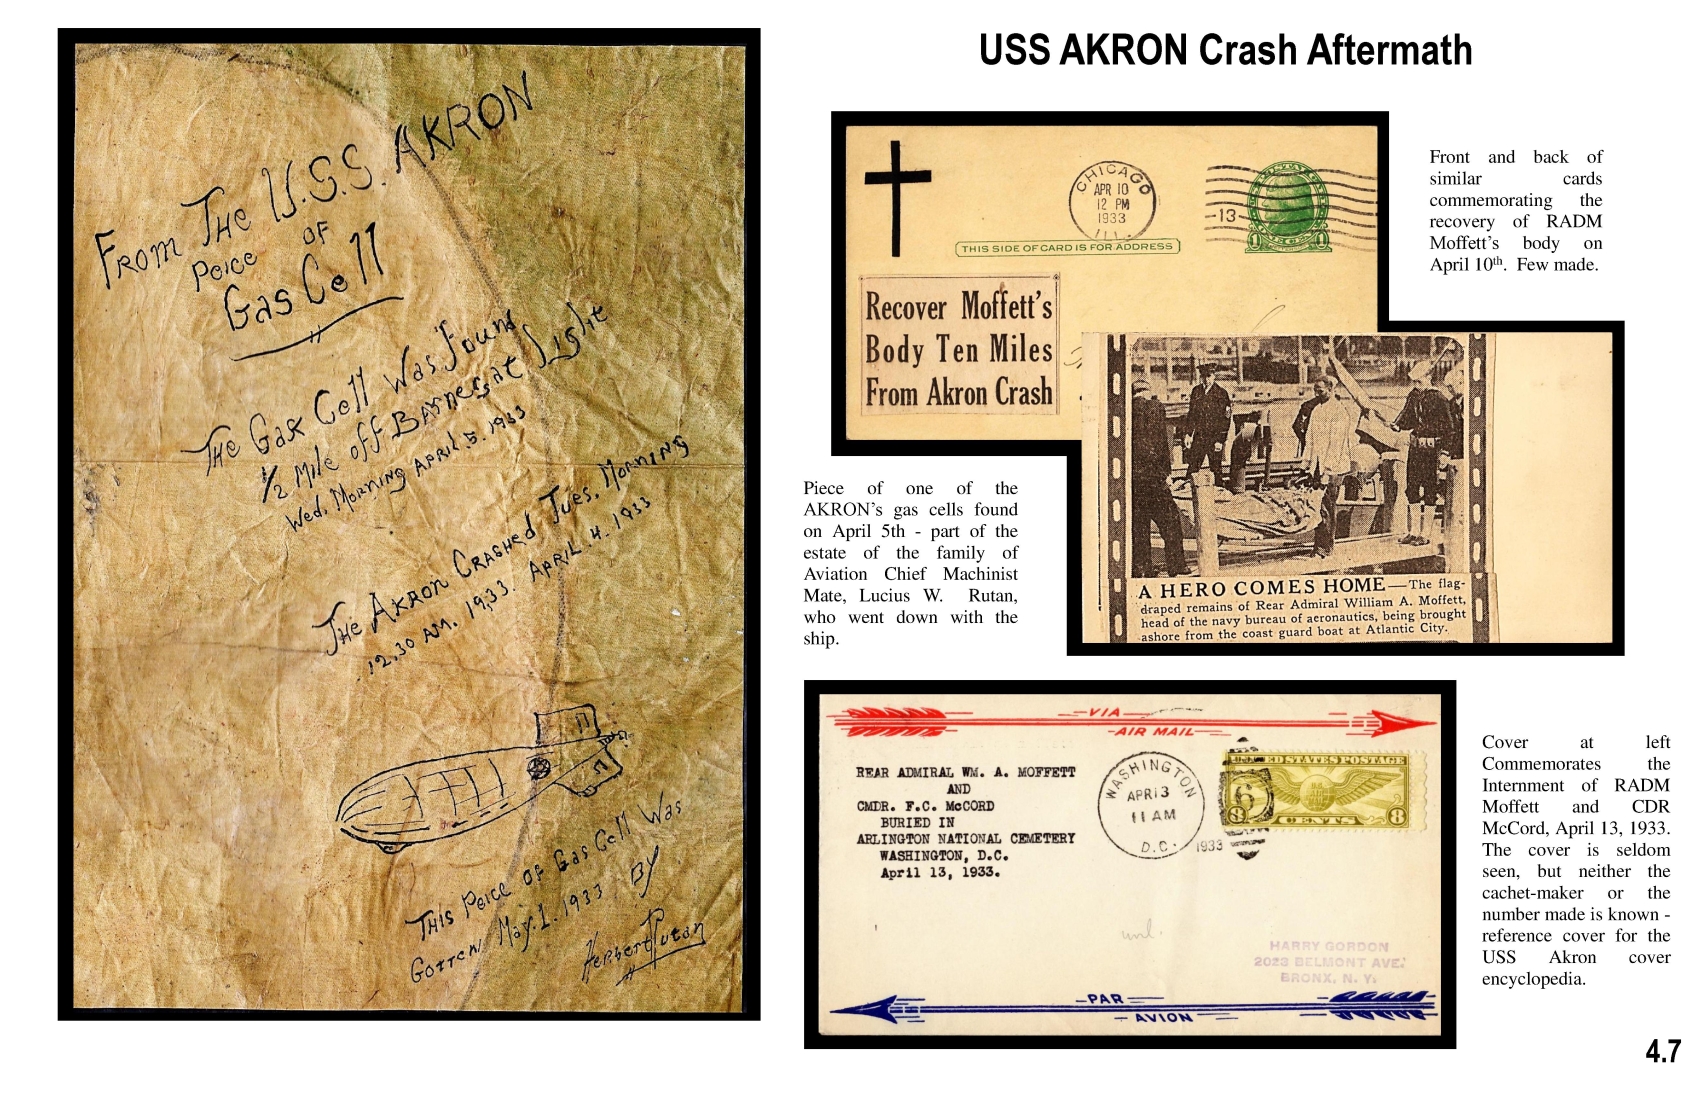 USS AKRON Crash Aftermath
FROM THE U.S.S. AKRON
Peice OF
Gas Cell
THE Gas Cell Was Found
1/2 Mile off BARNEGAT Light
Wed. MORNING APRIL 5. 1933
THE AKRON CRASHED TUES. MORNING
12,30 AM. 19,33. APRIL. 4. 1933
THIS Peice OF Gas Cell Was
GOTTEN May. 1. 1933 BY
Herbert Rutan
CHICAGO
APR 10
12 PM
1933
ILL.
-13-
THIS SIDE OF CARD IS FOR ADDRESS
Recover Moffett's
Body Ten Miles
From Akron Crash
Front and back of
similar cards
commemorating the
recovery of RADM
Moffett's body on
April 10th. Few made.
A HERO COMES HOME—The flag-
draped remains of Rear Admiral William A. Moffett,
head of the navy bureau of aeronautics, being brought
ashore from the coast guard boat at Atlantic City.
Piece of one of the
AKRON's gas cells found
on April 5th - part of the
estate of the family of
Aviation Chief Machinist
Mate, Lucius W. Rutan,
who went down with the
ship.
VIA
AIR MAIL
REAR ADMIRAL WM. A. MOFFETT
AND
CMDR. F.C. McCORD
BURIED IN
ARLINGTON NATIONAL CEMETERY
WASHINGTON, D.C.
April 13, 1933.
WASHINGTON
APR 13
11 AM
D.C. 1933
6
UNITED STATES POSTAGE
8 CENTS 8
HARRY GORDON
2023 BELMONT AVE.
BRONX, N. Y.
PAR
AVION
Cover at left
Commemorates the
Internment of RADM
Moffett and CDR
McCord, April 13, 1933.
The cover is seldom
seen, but neither the
cachet-maker or the
number made is known -
reference cover for the
USS Akron cover
encyclopedia.
4.7